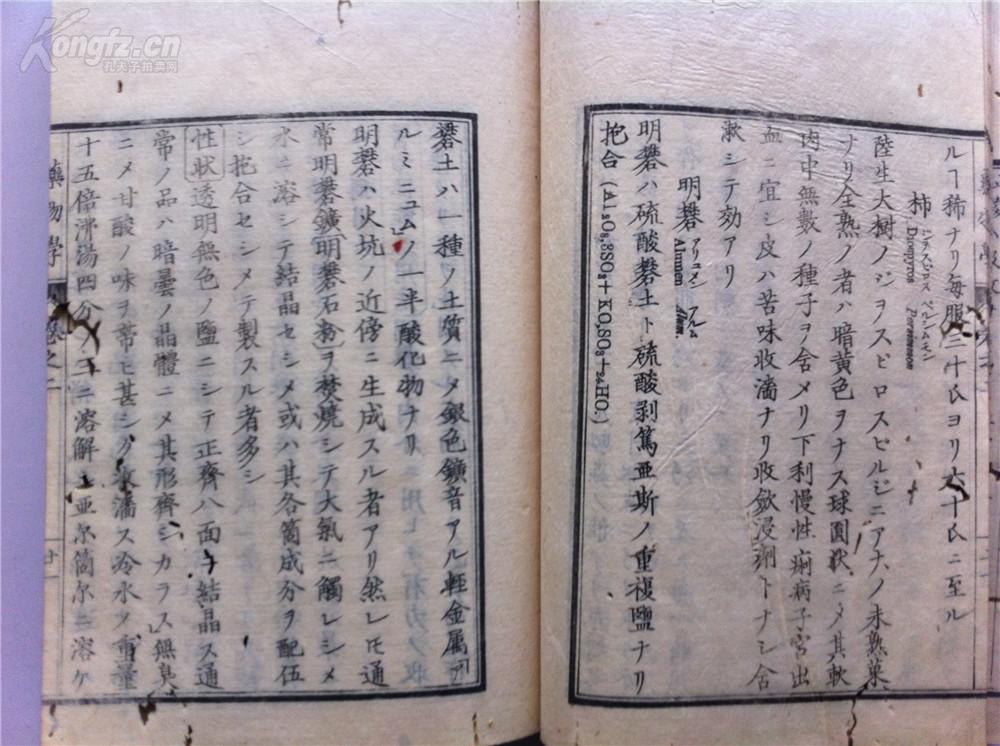 ルヿ稀ナリ毎服三十氏ヨリ六十氏ニ至ル
柿 ジヲスピロス ペルシムモン
Diospyros Persimmon
陸生大樹ノジヲスピロスビルジニアナノ未熟菓
ナリ全熟ノ者ハ暗黄色ヲナス球圓狀ニ〆其軟
肉中無數ノ種子ヲ含メリ下利慢性痢病子宮出
血ニ宜シ皮ハ苦味收濇ナリ收斂浸劑トナシ含
漱シテ効アリ
明礬 アリュメン アルム
Alumen Alum.
明礬ハ硫酸礬土ト硫酸剥篤亜斯ノ重複鹽ナリ
抱合(Al₂O₃,3SO₃+KO,SO₃+24HO.)
礬土ハ一種ノ土質ニ〆銀色鑛音アル輕金属
ルミニュムノ一半酸化物ナリ
明礬ハ火坑ノ近傍ニ生成スル者アリ然レ𪜈通
常明礬鑛明礬石粉ヲ焚燒シテ大氣ニ觸レシメ
水ニ溶シテ結晶セシメ或ハ其各箇成分ヲ配伍
シ抱合セシメテ製スル者多シ
性狀透明無色ノ鹽ニシテ正齊八面ニ結晶ス通
常ノ品ハ暗曇ノ晶體ニ〆其形齊シカラス無臭
ニ〆甘酸ノ味ヲ帯ヒ甚シク收濇ス冷水ノ重量
十五倍沸湯四分ノ三ニ溶解シ亜尓箇尓ニ溶ケ
藥物學 卷之二
廿一
Kongfz.cn
孔夫子拍卖网